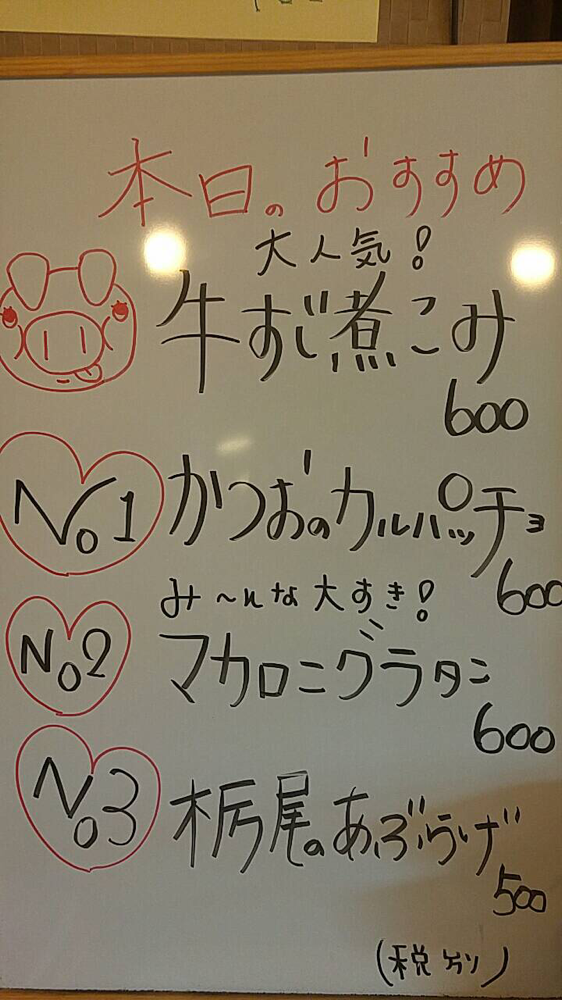 本日のおすすめ
大人気!
牛すじ煮こみ
600
No1 かつおのカルパッチョ
600
み〜んな大すき!
No2 マカロニグラタン
600
No3 栃尾のあぶらげ
500
(税別)